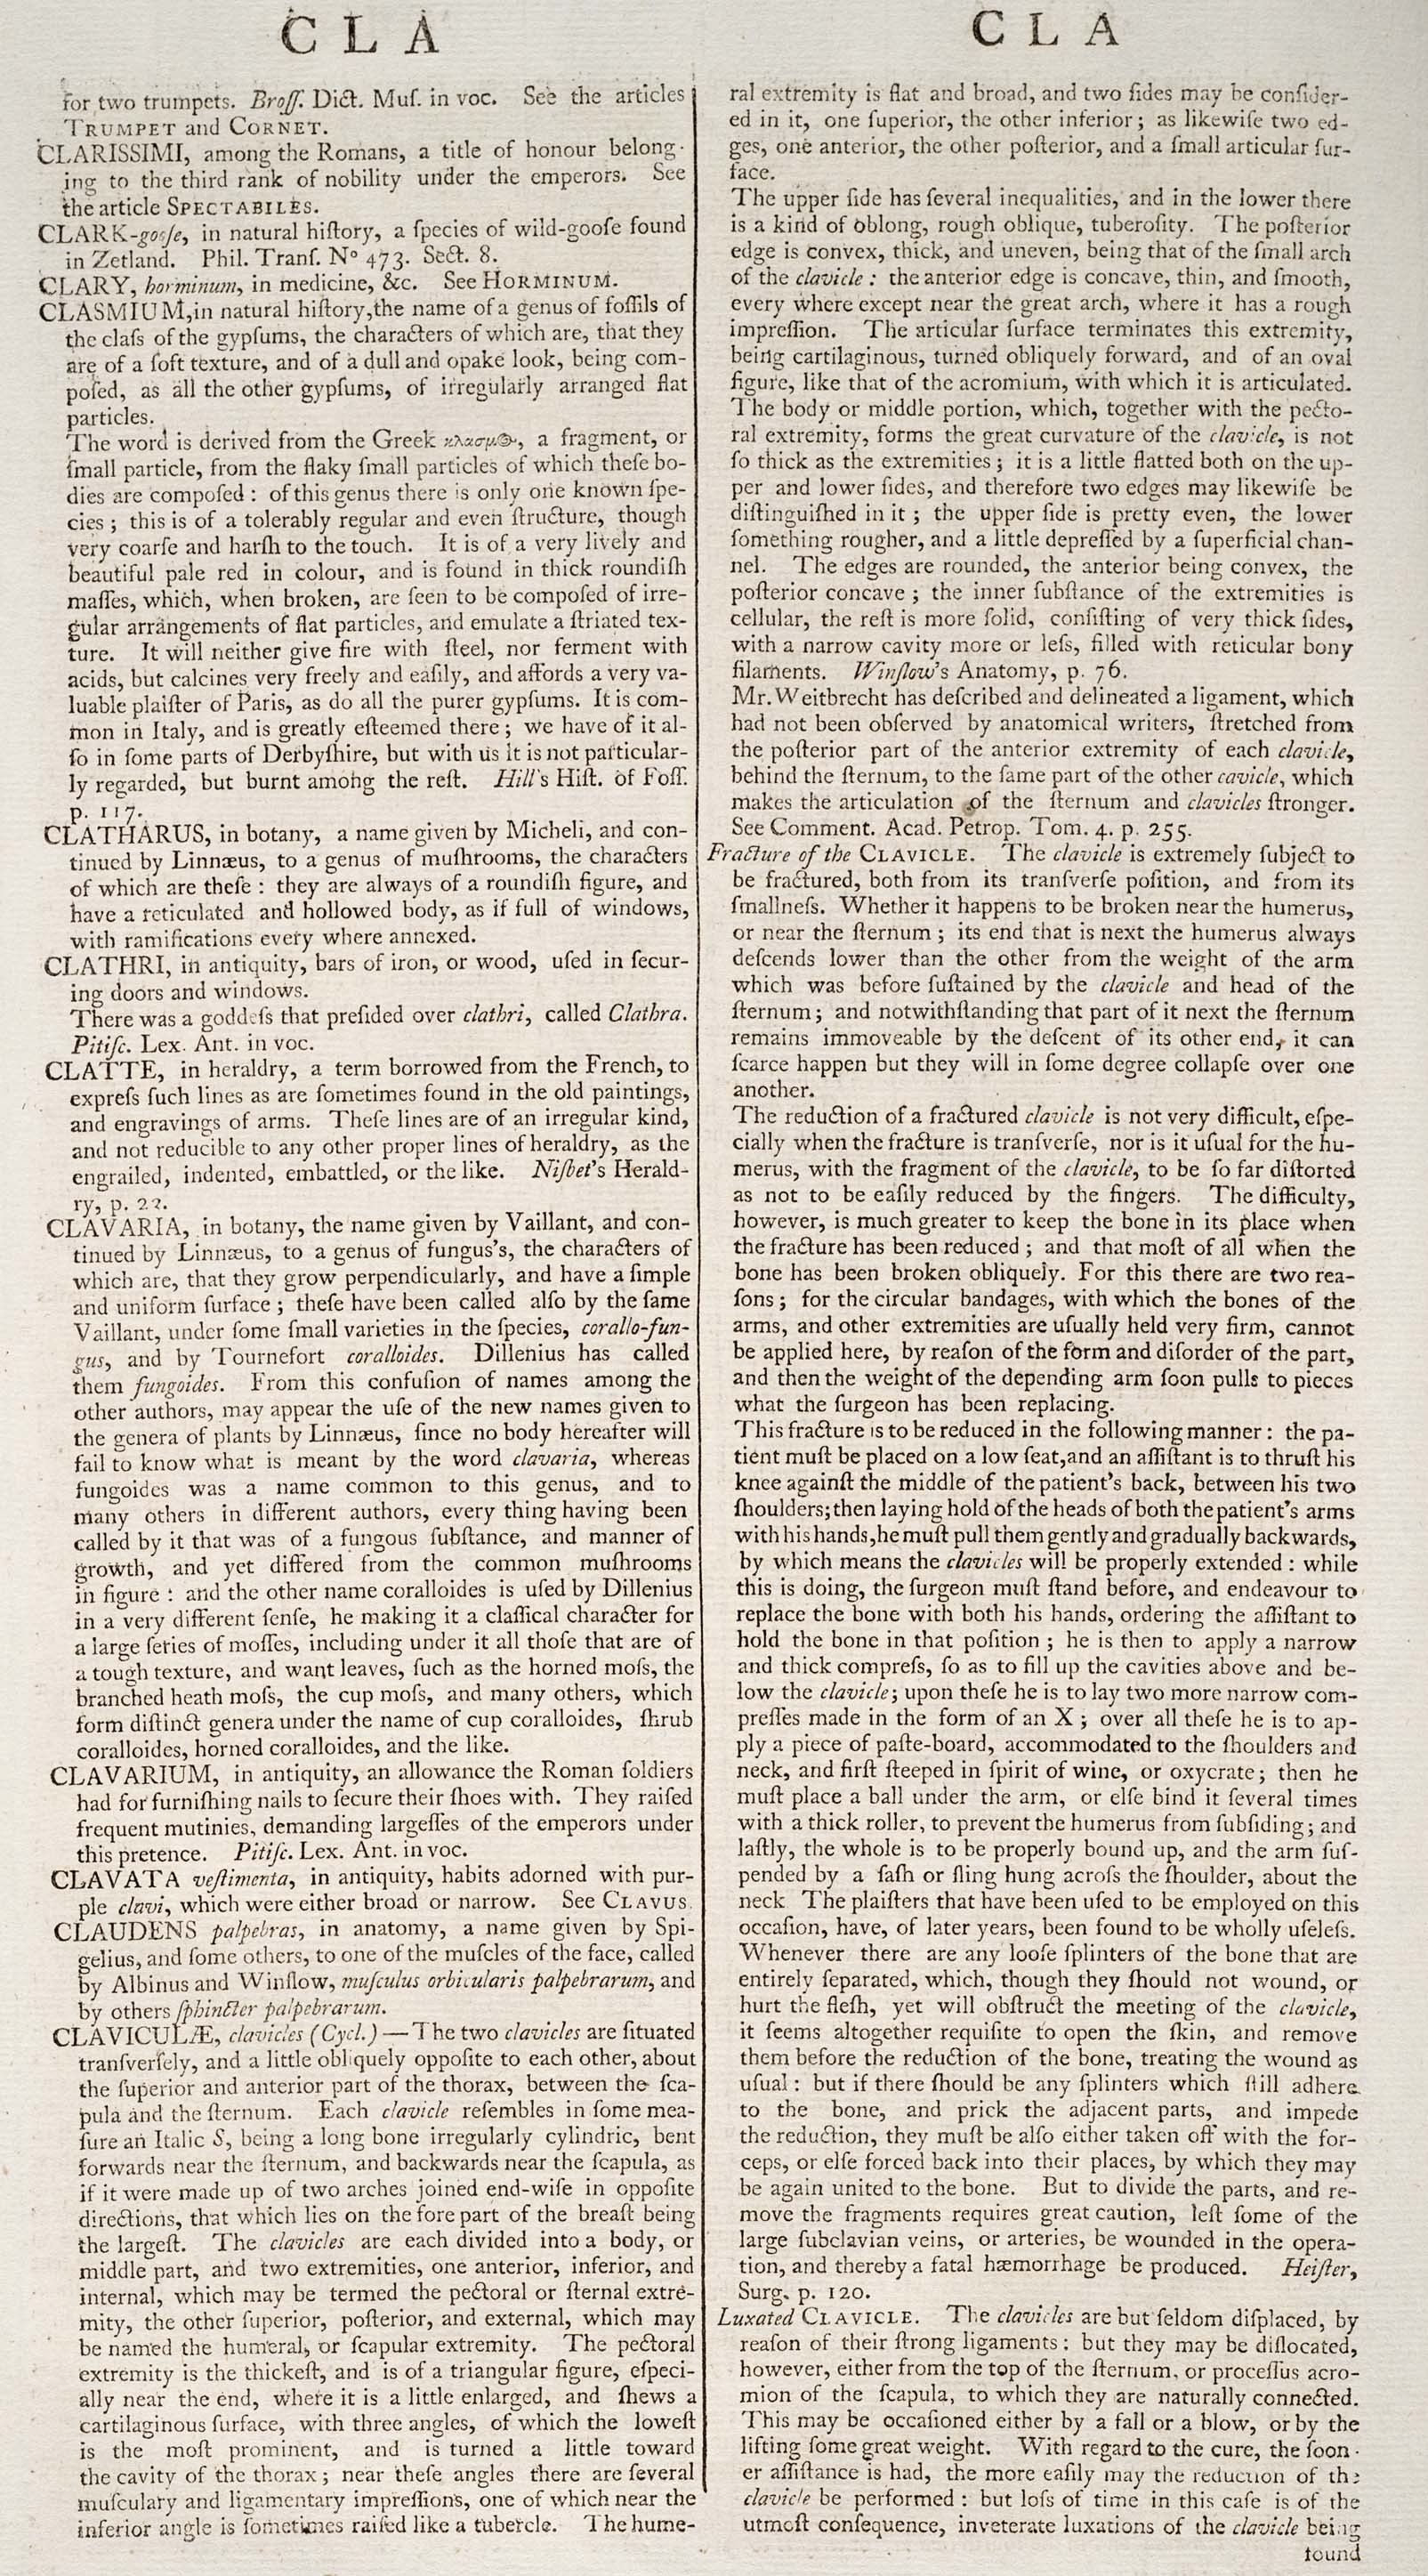 C L A
for two trumpets. Broſſ. Dict. Muſ. in voc. See the articles
TRUMPET and CORNET.
CLARISSIMI, among the Romans, a title of honour belong-
ing to the third rank of nobility under the emperors. See
the article SPECTABILES.
CLARK-gooſe, in natural hiſtory, a ſpecies of wild-gooſe found
in Zetland. Phil. Tranſ. Nº 473. Sect. 8.
CLARY, horminum, in medicine, &c. See HORMINUM.
CLASMIUM, in natural hiſtory, the name of a genus of foſſils of
the claſs of the gypſums, the characters of which are, that they
are of a ſoft texture, and of a dull and opake look, being com-
poſed, as all the other gypſums, of irregularly arranged flat
particles.
The word is derived from the Greek κλασμος, a fragment, or
ſmall particle, from the flaky ſmall particles of which theſe bo-
dies are compoſed : of this genus there is only one known ſpe-
cies ; this is of a tolerably regular and even ſtructure, though
very coarſe and harſh to the touch. It is of a very lively and
beautiful pale red in colour, and is found in thick roundiſh
maſſes, which, when broken, are ſeen to be compoſed of irre-
gular arrangements of flat particles, and emulate a ſtriated tex-
ture. It will neither give fire with ſteel, nor ferment with
acids, but calcines very freely and eaſily, and affords a very va-
luable plaiſter of Paris, as do all the purer gypſums. It is com-
mon in Italy, and is greatly eſteemed there ; we have of it al-
ſo in ſome parts of Derbyſhire, but with us it is not particular-
ly regarded, but burnt among the reſt. Hill's Hiſt. of Foſſ.
p. 117.
CLATHARUS, in botany, a name given by Micheli, and con-
tinued by Linnæus, to a genus of muſhrooms, the characters
of which are theſe : they are always of a roundiſh figure, and
have a reticulated and hollowed body, as if full of windows,
with ramifications every where annexed.
CLATHRI, in antiquity, bars of iron, or wood, uſed in ſecur-
ing doors and windows.
There was a goddeſs that preſided over clathri, called Clathra.
Pitiſc. Lex. Ant. in voc.
CLATTE, in heraldry, a term borrowed from the French, to
expreſs ſuch lines as are ſometimes found in the old paintings,
and engravings of arms. Theſe lines are of an irregular kind,
and not reducible to any other proper lines of heraldry, as the
engrailed, indented, embattled, or the like. Niſbet's Herald-
ry, p. 22.
CLAVARIA, in botany, the name given by Vaillant, and con-
tinued by Linnæus, to a genus of fungus's, the characters of
which are, that they grow perpendicularly, and have a ſimple
and uniform ſurface ; theſe have been called alſo by the ſame
Vaillant, under ſome ſmall varieties in the ſpecies, corallo-fun-
gus, and by Tournefort coralloides. Dillenius has called
them fungoides. From this confuſion of names among the
other authors, may appear the uſe of the new names given to
the genera of plants by Linnæus, ſince no body hereafter will
fail to know what is meant by the word clavaria, whereas
fungoides was a name common to this genus, and to
many others in different authors, every thing having been
called by it that was of a fungous ſubſtance, and manner of
growth, and yet differed from the common muſhrooms
in figure : and the other name coralloides is uſed by Dillenius
in a very different ſenſe, he making it a claſſical character for
a large ſeries of moſſes, including under it all thoſe that are of
a tough texture, and want leaves, ſuch as the horned moſs, the
branched heath moſs, the cup moſs, and many others, which
form diſtinct genera under the name of cup coralloides, ſhrub
coralloides, horned coralloides, and the like.
CLAVARIUM, in antiquity, an allowance the Roman ſoldiers
had for furniſhing nails to ſecure their ſhoes with. They raiſed
frequent mutinies, demanding largeſſes of the emperors under
this pretence. Pitiſc. Lex. Ant. in voc.
CLAVATA veſtimenta, in antiquity, habits adorned with pur-
ple clavi, which were either broad or narrow. See CLAVUS.
CLAUDENS palpebras, in anatomy, a name given by Spi-
gelius, and ſome others, to one of the muſcles of the face, called
by Albinus and Winſlow, muſculus orbicularis palpebrarum, and
by others ſphincter palpebrarum.
CLAVICULÆ, clavicles (Cycl.) — The two clavicles are ſituated
tranſverſely, and a little obliquely oppoſite to each other, about
the ſuperior and anterior part of the thorax, between the ſca-
pula and the ſternum. Each clavicle reſembles in ſome mea-
ſure an Italic S, being a long bone irregularly cylindric, bent
forwards near the ſternum, and backwards near the ſcapula, as
if it were made up of two arches joined end-wiſe in oppoſite
directions, that which lies on the fore part of the breaſt being
the largeſt. The clavicles are each divided into a body, or
middle part, and two extremities, one anterior, inferior, and
internal, which may be termed the pectoral or ſternal extre-
mity, the other ſuperior, poſterior, and external, which may
be named the humeral, or ſcapular extremity. The pectoral
extremity is the thickeſt, and is of a triangular figure, eſpeci-
ally near the end, where it is a little enlarged, and ſhews a
cartilaginous ſurface, with three angles, of which the loweſt
is the moſt prominent, and is turned a little toward
the cavity of the thorax ; near theſe angles there are ſeveral
muſculary and ligamentary impreſſions, one of which near the
inferior angle is ſometimes raiſed like a tubercle. The hume-
C L A
ral extremity is flat and broad, and two ſides may be conſider-
ed in it, one ſuperior, the other inferior ; as likewiſe two ed-
ges, one anterior, the other poſterior, and a ſmall articular ſur-
face.
The upper ſide has ſeveral inequalities, and in the lower there
is a kind of oblong, rough oblique, tuberoſity. The poſterior
edge is convex, thick, and uneven, being that of the ſmall arch
of the clavicle : the anterior edge is concave, thin, and ſmooth,
every where except near the great arch, where it has a rough
impreſſion. The articular ſurface terminates this extremity,
being cartilaginous, turned obliquely forward, and of an oval
figure, like that of the acromium, with which it is articulated.
The body or middle portion, which, together with the pecto-
ral extremity, forms the great curvature of the clavicle, is not
ſo thick as the extremities ; it is a little flatted both on the up-
per and lower ſides, and therefore two edges may likewiſe be
diſtinguiſhed in it ; the upper ſide is pretty even, the lower
ſomething rougher, and a little depreſſed by a ſuperficial chan-
nel. The edges are rounded, the anterior being convex, the
poſterior concave ; the inner ſubſtance of the extremities is
cellular, the reſt is more ſolid, conſiſting of very thick ſides,
with a narrow cavity more or leſs, filled with reticular bony
filaments. Winſlow's Anatomy, p. 76.
Mr. Weitbrecht has deſcribed and delineated a ligament, which
had not been obſerved by anatomical writers, ſtretched from
the poſterior part of the anterior extremity of each clavicle,
behind the ſternum, to the ſame part of the other cavicle, which
makes the articulation of the ſternum and clavicles ſtronger.
See Comment. Acad. Petrop. Tom. 4. p. 255.
Fracture of the CLAVICLE. The clavicle is extremely ſubject to
be fractured, both from its tranſverſe poſition, and from its
ſmallneſs. Whether it happens to be broken near the humerus,
or near the ſternum ; its end that is next the humerus always
deſcends lower than the other from the weight of the arm
which was before ſuſtained by the clavicle and head of the
ſternum ; and notwithſtanding that part of it next the ſternum
remains immoveable by the deſcent of its other end, it can
ſcarce happen but they will in ſome degree collapſe over one
another.
The reduction of a fractured clavicle is not very difficult, eſpe-
cially when the fracture is tranſverſe, nor is it uſual for the hu-
merus, with the fragment of the clavicle, to be ſo far diſtorted
as not to be eaſily reduced by the fingers. The difficulty,
however, is much greater to keep the bone in its place when
the fracture has been reduced ; and that moſt of all when the
bone has been broken obliquely. For this there are two rea-
ſons ; for the circular bandages, with which the bones of the
arms, and other extremities are uſually held very firm, cannot
be applied here, by reaſon of the form and diſorder of the part,
and then the weight of the depending arm ſoon pulls to pieces
what the ſurgeon has been replacing.
This fracture is to be reduced in the following manner : the pa-
tient muſt be placed on a low ſeat, and an aſſiſtant is to thruſt his
knee againſt the middle of the patient's back, between his two
ſhoulders; then laying hold of the heads of both the patient's arms
with his hands, he muſt pull them gently and gradually backwards,
by which means the clavicles will be properly extended : while
this is doing, the ſurgeon muſt ſtand before, and endeavour to
replace the bone with both his hands, ordering the aſſiſtant to
hold the bone in that poſition ; he is then to apply a narrow
and thick compreſs, ſo as to fill up the cavities above and be-
low the clavicle; upon theſe he is to lay two more narrow com-
preſſes made in the form of an X ; over all theſe he is to ap-
ply a piece of paſte-board, accommodated to the ſhoulders and
neck, and firſt ſteeped in ſpirit of wine, or oxycrate; then he
muſt place a ball under the arm, or elſe bind it ſeveral times
with a thick roller, to prevent the humerus from ſubſiding; and
laſtly, the whole is to be properly bound up, and the arm ſuſ-
pended by a ſaſh or ſling hung acroſs the ſhoulder, about the
neck The plaiſters that have been uſed to be employed on this
occaſion, have, of later years, been found to be wholly uſeleſs.
Whenever there are any looſe ſplinters of the bone that are
entirely ſeparated, which, though they ſhould not wound, or
hurt the fleſh, yet will obſtruct the meeting of the clavicle,
it ſeems altogether requiſite to open the ſkin, and remove
them before the reduction of the bone, treating the wound as
uſual : but if there ſhould be any ſplinters which ſtill adhere
to the bone, and prick the adjacent parts, and impede
the reduction, they muſt be alſo either taken off with the for-
ceps, or elſe forced back into their places, by which they may
be again united to the bone. But to divide the parts, and re-
move the fragments requires great caution, leſt ſome of the
large ſubclavian veins, or arteries, be wounded in the opera-
tion, and thereby a fatal hæmorrhage be produced. Heiſter,
Surg. p. 120.
Luxated CLAVICLE. The clavicles are but ſeldom diſplaced, by
reaſon of their ſtrong ligaments : but they may be diſlocated,
however, either from the top of the ſternum, or proceſſus acro-
mion of the ſcapula, to which they are naturally connected.
This may be occaſioned either by a fall or a blow, or by the
lifting ſome great weight. With regard to the cure, the ſoon-
er aſſiſtance is had, the more eaſily may the reduction of the
clavicle be performed : but loſs of time in this caſe is of the
utmoſt conſequence, inveterate luxations of the clavicle being
found